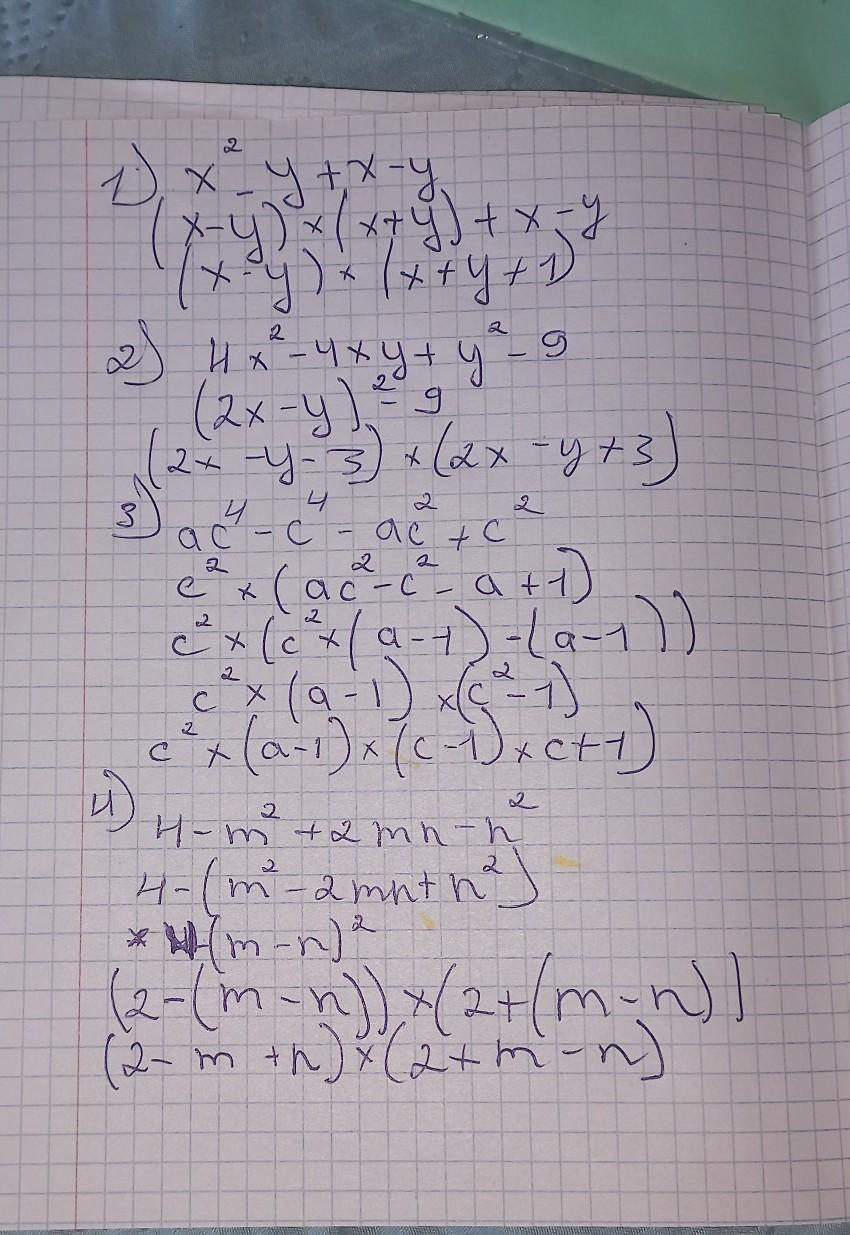 1) x² - y + x - y
(x-y) × (x+y) + x - y
(x-y) × (x+y+1)
2) 4x² - 4xy + y² - 9
(2x-y)² - 9
(2x-y-3) × (2x-y+3)
3) ac⁴ - c⁴ - ac² + c²
c² × (ac² - c² - a + 1)
c² × (c² × (a-1) - (a-1))
c² × (a-1) × (c²-1)
c² × (a-1) × (c-1) × c+1)
4) 4 - m² + 2mn - n²
4 - (m² - 2mn + n²)
* 4-(m-n)²
(2-(m-n)) × (2+(m-n)]
(2-m+n) × (2+m-n)